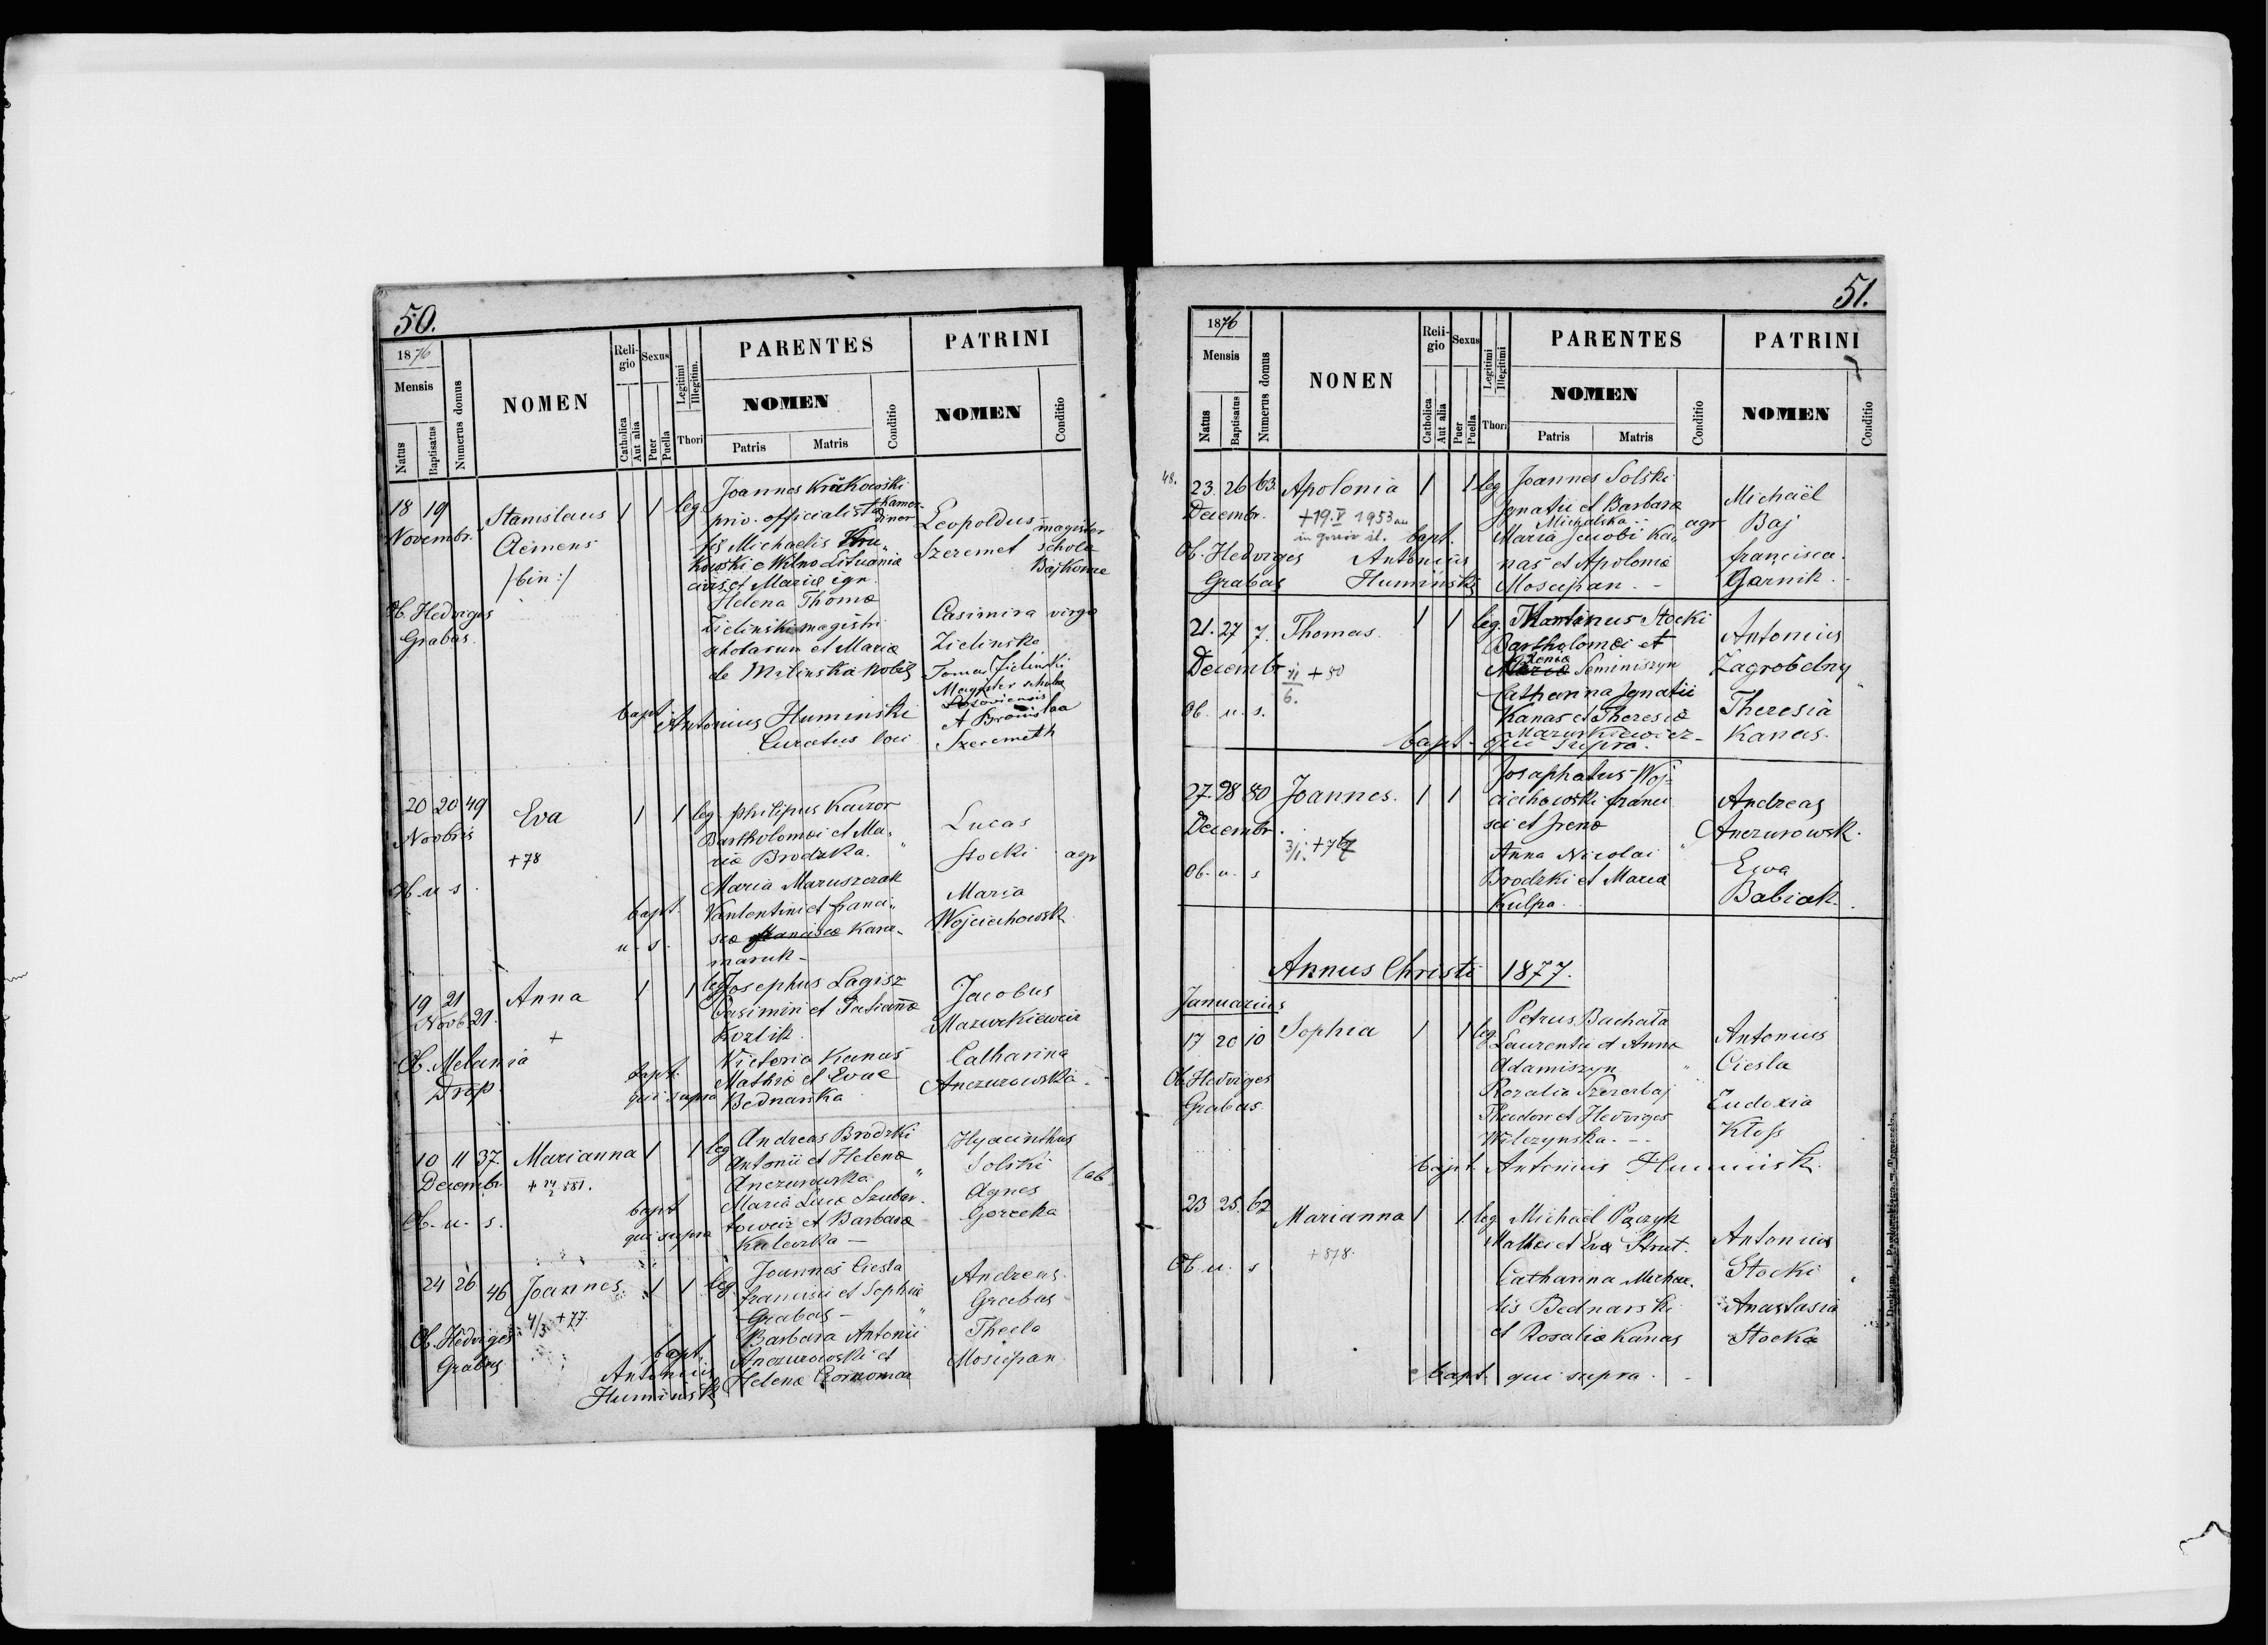 50.
1876
Mensis
Natus
Baptisatus
Numerus domus
NOMEN
Reli-
gio
Catholica
Aut alia
Sexus
Puer
Puella
Legitimi
Illegitim.
Thori
PARENTES
NOMEN
Patris
Matris
Conditio
PATRINI
NOMEN
Conditio
18 19 Stanislaus 1 1 leg Joannes Krakowski
Novembr. Clemens priv. officialista
/bin:/ Michaelis
kowski e Wilno Lituania
civis et Mariæ
Leopoldus magister
Szeremet schola
Ob. Hedviges
Grabas.
Helena Thomæ
Zielinski magistri
scholarum et Mariæ
de Milinska nobil
Casimira virgo
Zielinska
Tomas Zielinski
Magister schola
A Bronislaa
Szeremeth
bapt Antonius Huminski
Curatus loci
20 20 49 Eva 1 1 leg. Philipus Kaczor
Novbris
+78
Bartholomæi et Ma-
riæ Brodzka. "
Lucas
Stocki agr
Ob. u. s.
Maria Maruszczak
Valentini et franci-
scæ Kara-
maruk-
bapt.
u. s.
Maria
Wojciechowsk
19 21 Anna 1 1 leg Josephus Lagisz
Novb 21.
+
Casimiri et Tatiannæ
Kozlik.
Jacobus
Mazurkiewicz
Ob. Melania
Drop.
Victoria Kanas
Mathiæ et Evae
Bednarska
bapt.
qui supra
Catharina
Anczurowska
10 11 37. Marianna 1 1 leg Andreas Brodzki
Decembr.
Antonii et Helenæ
Anczurowska "
Hyacinthus
Solski lab
Ob. u. s.
bapt
qui supra
Maria Lucæ Szubar-
towicz et Barbaræ
Kaleczka -
Agnes
Gorecka
24 26 46 Joannes 1 1 leg. Joannes Ciesla
4/3 +77
francisci et Sophiæ
Grabas - "
Andreas
Grabas
Ob. Hedviges
Grabas
bapt.
Antonius
Huminski
Barbara Antonii
Anczurowski et
Helenæ Czornomaz
Thecla
Moscipan
51.
1876
Mensis
Natus
Baptisatus
Numerus domus
NONEN
Reli-
gio
Catholica
Aut alia
Sexus
Puer
Puella
Legitimi
Illegitimi
Thori
PARENTES
NOMEN
Patris
Matris
Conditio
PATRINI
NOMEN
Conditio
48. 23. 26 63. Apolonia 1 1 leg Joannes Solski
Decembr. +19. V 1953
Ignatii et Barbaræ
Michalska
Maria Jacobi Ka-
nas et Apoloniæ
Moscipan.-
agr
Michaël
Baj
francisca
Garnik.
bapt.
Ob. Hedviges
Grabas
Antonius
Huminski
21. 27 7. Thomas. 1 1 leg. Martinus Stocki
Decembr
6.
+80
Bartholomæi et
Seminiszyn
Catharina Ignatii
Kanas et Theresiæ
Mazurkiewicz-
Antonius
Zagrobelny
Theresia
Kanas.
Ob. u. s.
bapt - qui supra.
27. 28 80 Joannes. 1 1 Josaphatus Woj-
Decembr.
ciechowski franci
sci et Irenæ
Anna Nicolai
Brodzki et Maria
Kulpa
Andreas
Anczurowsk.
Ewa
Babiak.
Ob. u. s
Annus Christi 1877.
Januarius
17 20 10 Sophia 1 1 leg Petrus Bachata
Laurentii et Annæ
Adamiszyn "
Antonius
Ciesla
Ob. Hedviges
Grabas
Rozalia Szczerbaj
Theodori et Hedviges
Wilczynska.-
Eudoxia
Kłoss
bapt. Antonius Huminsk.
23 25. 62 Marianna 1 1 leg Michaël Paczyk
+878.
Mathæi et Evæ Strut.
Antonius
Stocki
Ob. u. s
Catharina Michae-
lis Bednarski
et Rosaliæ Kanas
Anastasia
Stocka
bapt. qui supra.